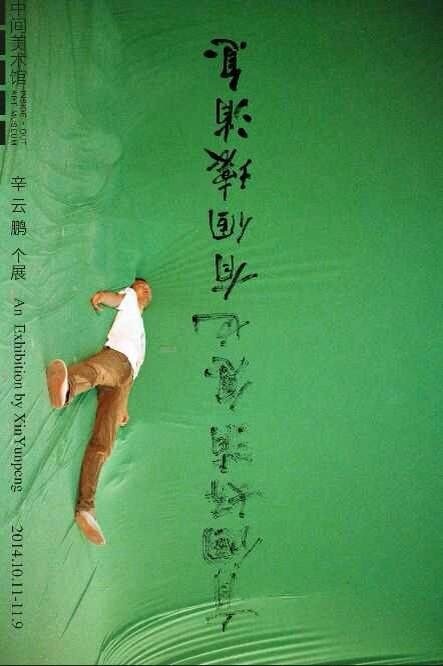 中间美术馆
INSIDE-OUT
ART MUSEUM
辛云鹏 个展 An Exhibition by XinYunpeng 2014.10.11-11.9
有個好消息也有個壞消息